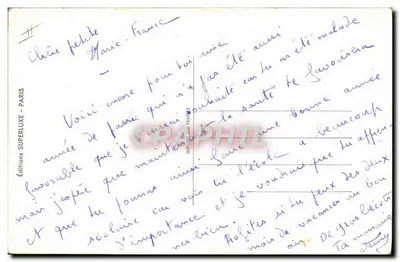 II
Chère petite
Marie-France
Voici encore pour toi une
année de passé qui n'a pas été aussi
favorable que je l'aurai souhaité car tu as été malade
mais j'espère que maintenant la santé te favorisera
et que tu pourras aussi faire une bonne année
scolaire car vois tu l'école a beaucoup
d'importance et je voudrais que tu apprennes bien.
Profites si tu peux des deux
mois de vacances au bon
air. De gros bécots
Ta
Éditions SUPERLUXE - PARIS
CARTOPHILIE